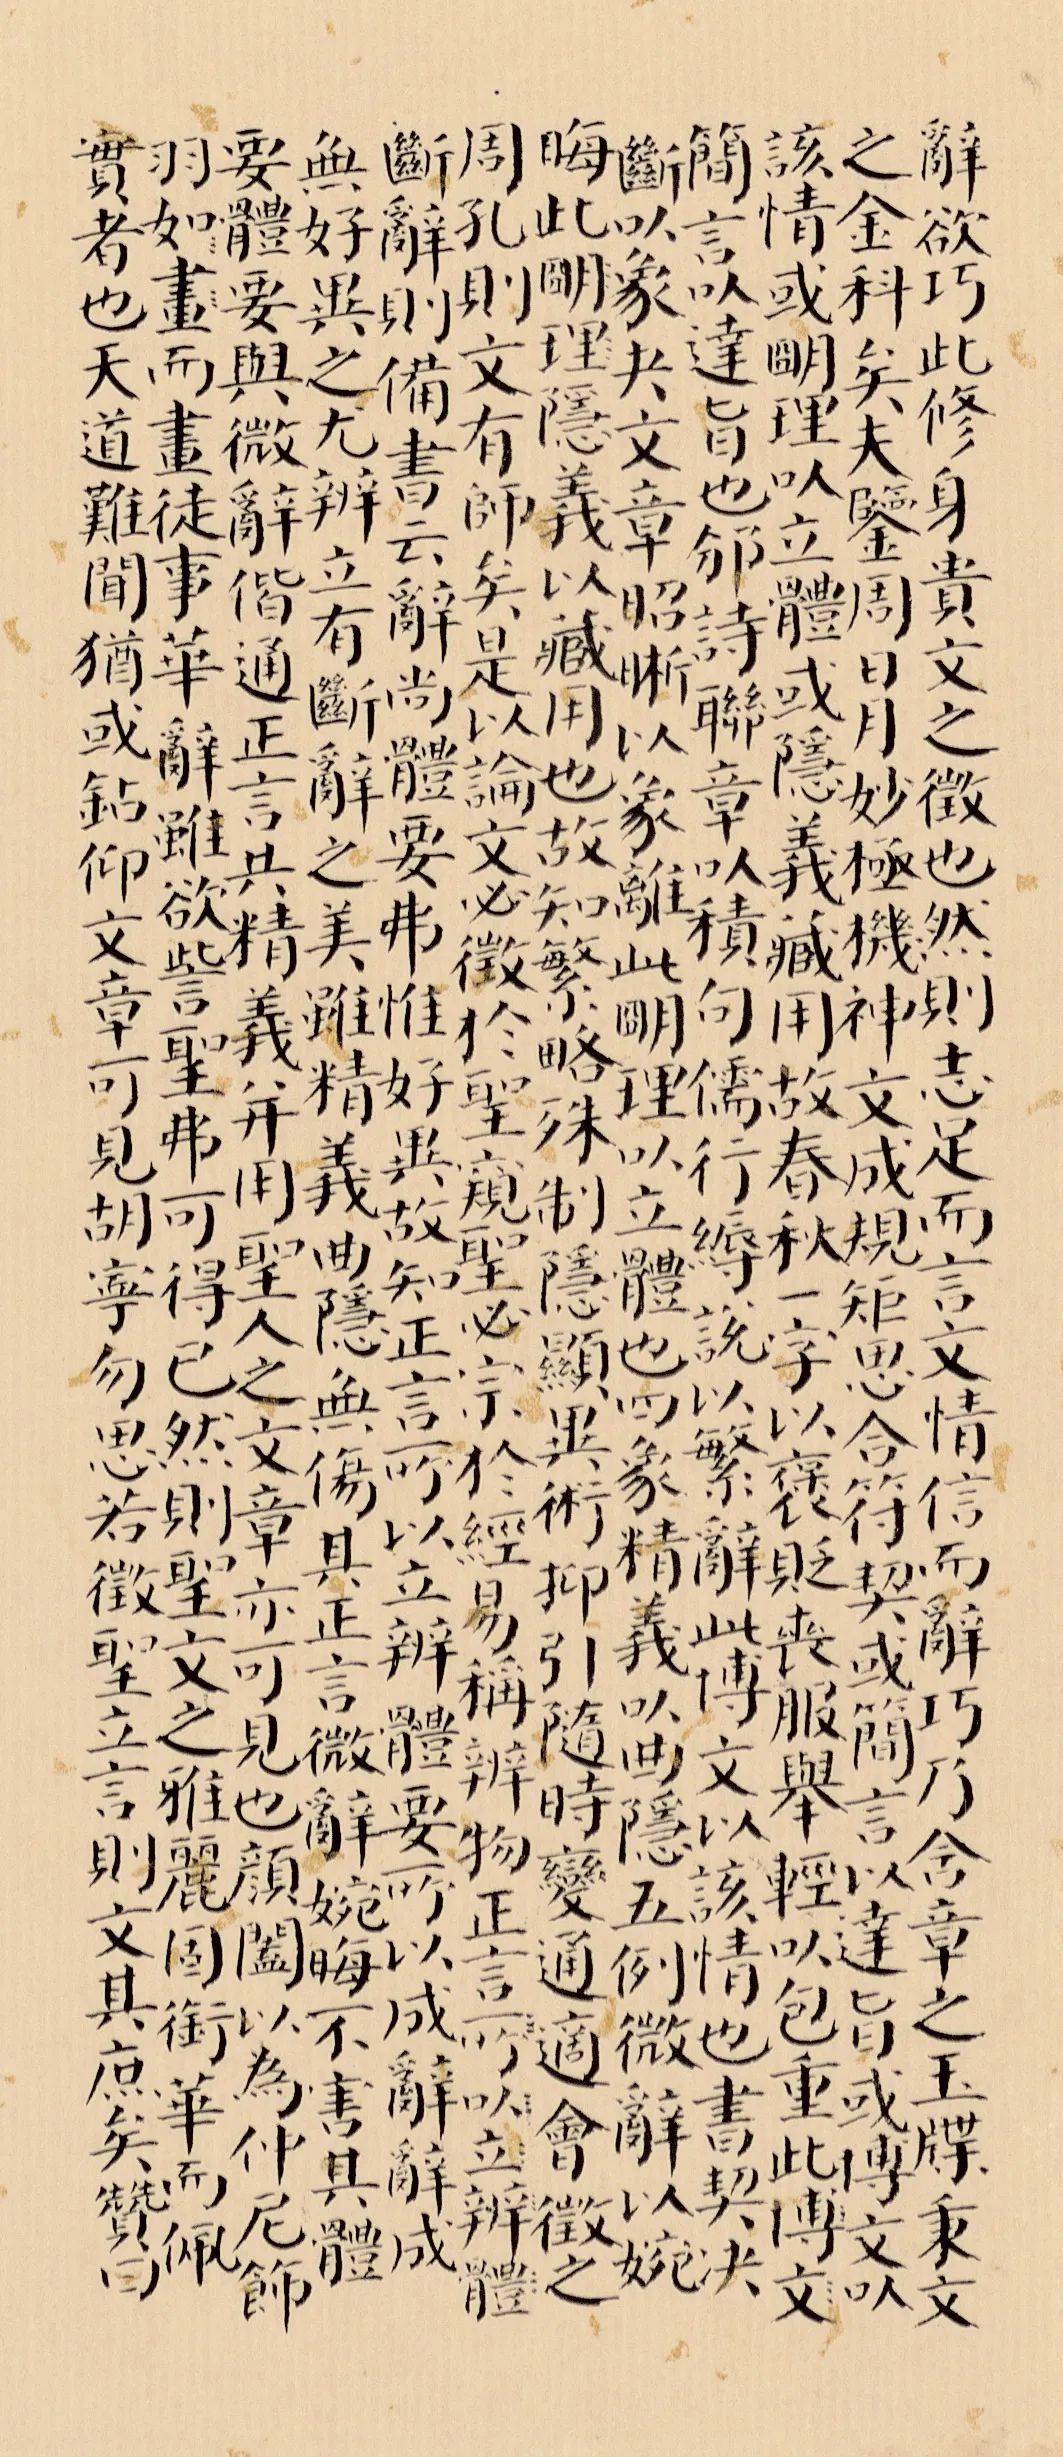 辭欲巧此修身貴文之徵也然則志足而言文情信而辭巧乃含章之玉牒秉文
之金科矣夫鑒周日月妙極機神文成規矩思合符契或簡言以達旨或博文以
該情或明理以立體或隱義藏用故春秋一字以褒貶喪服舉輕以包重此博文
簡言以達旨也邠詩聯章以積句儒行縟說以繁辭此博文以該情也書契決
斷以象夬文章昭晣以象離此明理以立體也四象精義以曲隱五例微辭以婉
晦此明理隱義以藏用也故知繁略殊制隱顯異術抑引隨時變通適會徵之
周孔則文有師矣是以論文必徵於聖窺聖必宗於經易稱辨物正言所以立辨體
斷辭則備書云辭尚體要弗惟好異故知正言所以立辨體要所以成辭辭成
無好異之尤辨立有斷辭之美雖精義曲隱無傷其正言微辭婉晦不害其體
要體要與微辭偕通正言共精義并用聖人之文章亦可見也顏闔以為仲尼飾
羽如畫而畫徒事華辭雖欲訾聖弗可得已然則聖文之雅麗固銜華而佩
實者也天道難聞猶或鉆仰文章可見胡寧勿思若徵聖立言則文其庶矣贊曰